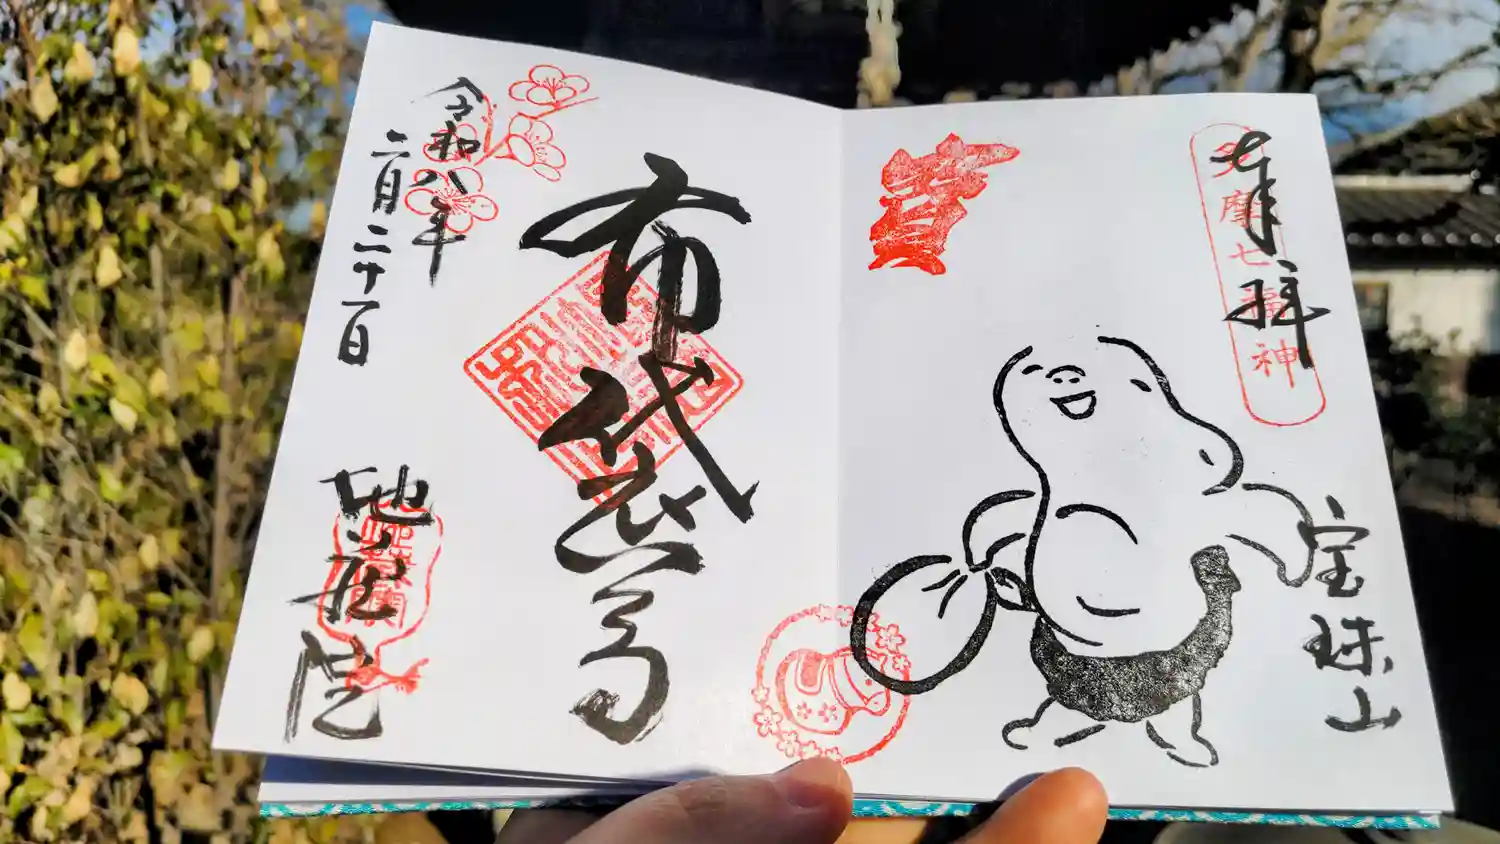 奉拝
多摩七福神
宝珠山
寳
布袋尊
令和八年
二月二十一日
地蔵院